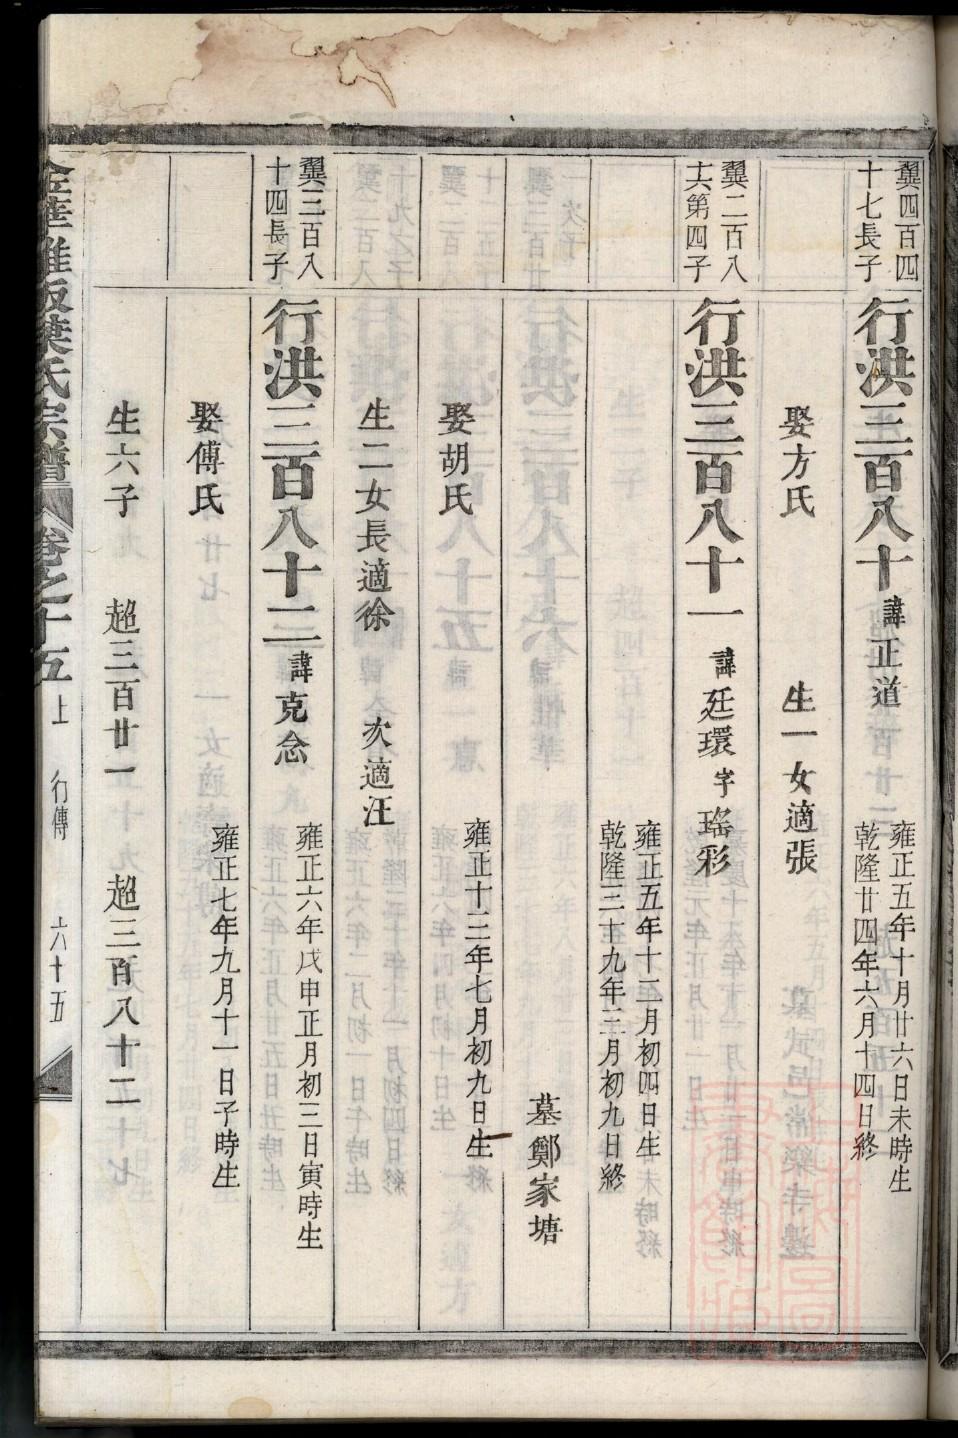 翼四百四
十七長子
行洪三百八十
諱正道
雍正五年十月廿六日未時生
乾隆廿四年六月十四日終
娶方氏
生一女適張
翼二百八
十六第四子
行洪三百八十一
諱廷環字瑤彩
雍正五年十二月初四日生
乾隆三十九年二月初九日終
墓鄭家塘
娶胡氏
雍正十二年七月初九日生
生二女長適徐
次適汪
翼三百八
十四長子
行洪三百八十二
諱克念
雍正六年戊申正月初三日寅時生
娶傅氏
雍正七年九月十一日子時生
生六子
超三百廿一
超三百八十二
金華雅畈葉氏宗譜
卷之十五上
行傳
六十五